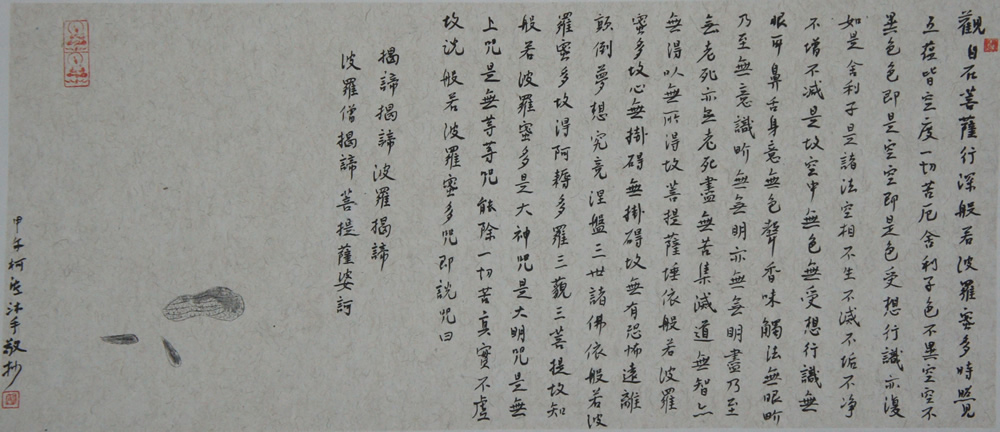 觀自在菩薩行深般若波羅蜜多時照見
五蘊皆空度一切苦厄舍利子色不異空空不
異色色即是空空即是色受想行識亦復
如是舍利子是諸法空相不生不滅不垢不净
不增不減是故空中無色無受想行識無
眼耳鼻舌身意無色聲香味觸法無眼界
乃至無意識界無無明亦無無明盡乃至
無老死亦無老死盡無苦集滅道無智亦
無得以無所得故菩提薩埵依般若波羅
蜜多故心無掛碍無掛碍故無有恐怖遠離
顛倒夢想究竟涅盤三世諸佛依般若波
羅蜜多故得阿耨多羅三藐三菩提故知
般若波羅蜜多是大神咒是大明咒是無
上咒是無等等咒能除一切苦真實不虛
故說般若波羅蜜多咒即說咒曰
揭諦揭諦波羅揭諦
波羅僧揭諦菩提薩婆訶
甲午柯沐手敬抄